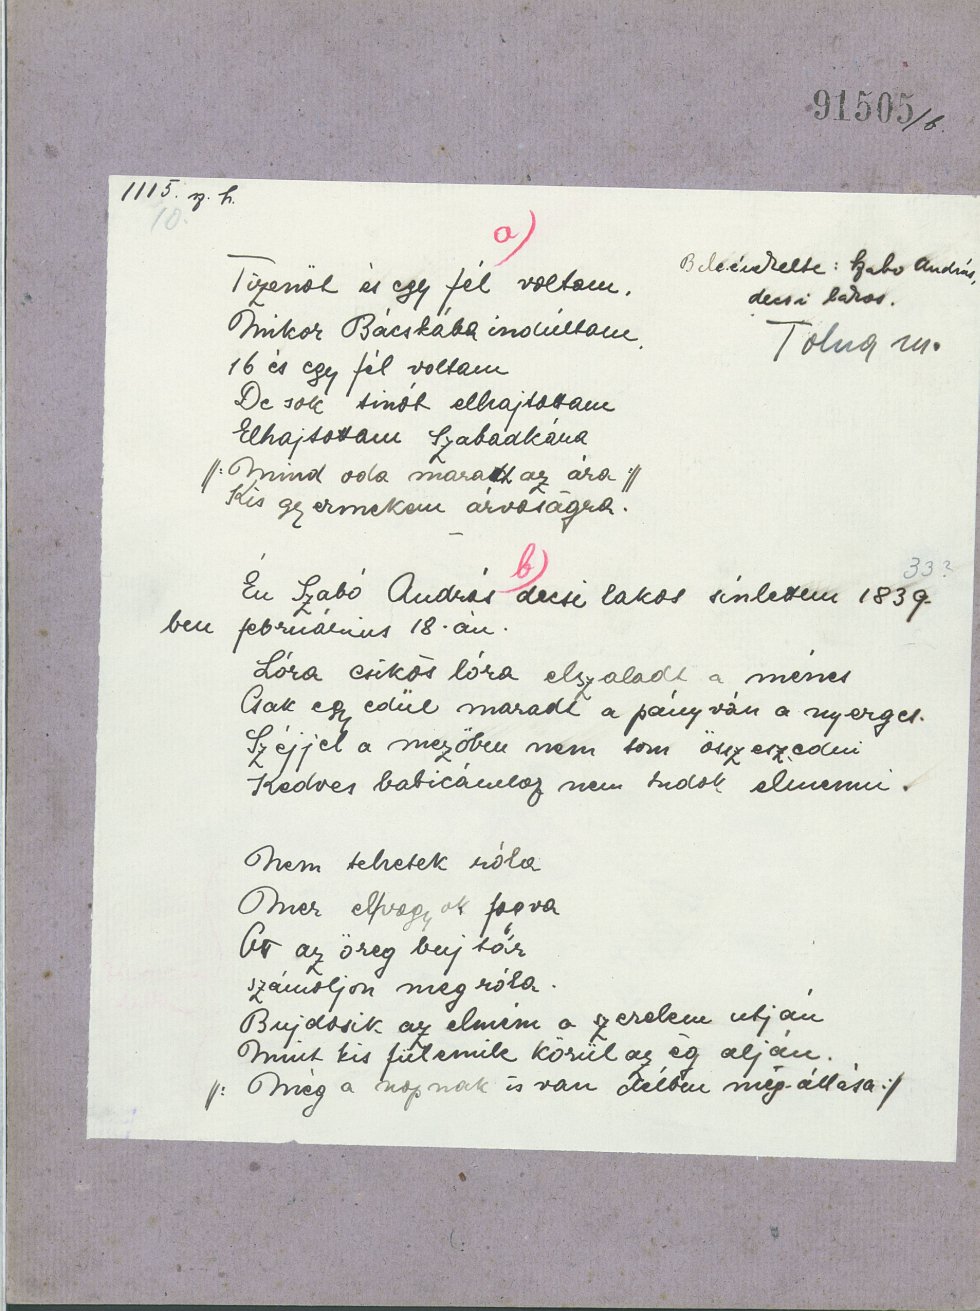 91505/b.
1115. sz. h.
10.
a)
Beleénekelte: Szabo András,
decsi lakos.
Tolna m.
Tizenöt és egy fél voltam.
Mikor Bácskába indúltam.
16 és egy fél voltam
De sok tinót elhajtottam
Elhajtottam Szabadkára
//: Mind oda maradt az ára ://
Kis gyermekem árvaságra.
b)
33?
Én Szabó András decsi lakos sinlettem 1839-
ben február 18.-án.
Lóra csikós lóra elszaladt a ménes
Csak egyedül maradt a pányván a nyerges.
Széjjel a mezőben nem tom összeszedni
Kedves babicámhoz nem tudok elmenni.
Nem tehetek róla
Mer elvagyok fogva
Ott az öreg bujtár
számoljon meg róla.
Bujdosik az elmém a szerelem utján
Mint kis fülemile körül az ég alján.
//: Még a napnak is van délben meg-állása ://